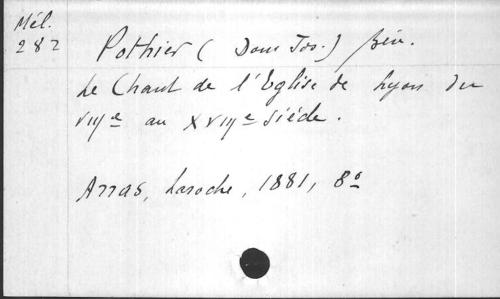 Mél.
282
Pothier (Dom Jos.) bén.
Le Chant de l'Eglise de Lyon du
VIIIe au XVIIIe siècle.
Arras, Laroche, 1881, 8º